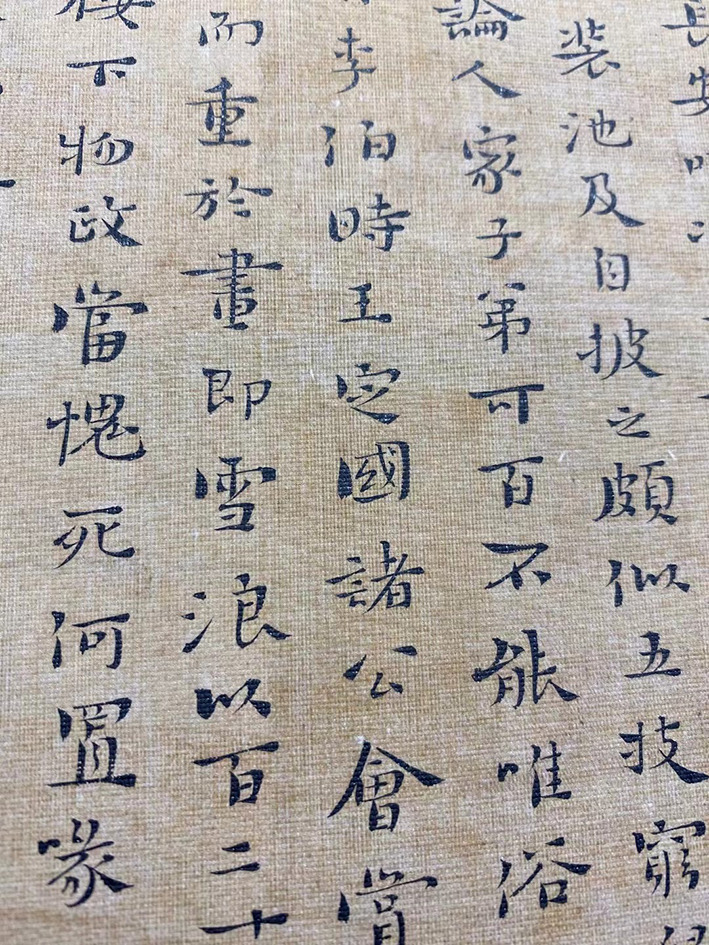 長安
裝池及自披之頗似五技窮
論人家子弟可百不能唯俗
李伯時王定國諸公會賞
而重於畫即雪浪以百二十
下物政當愧死何置喙